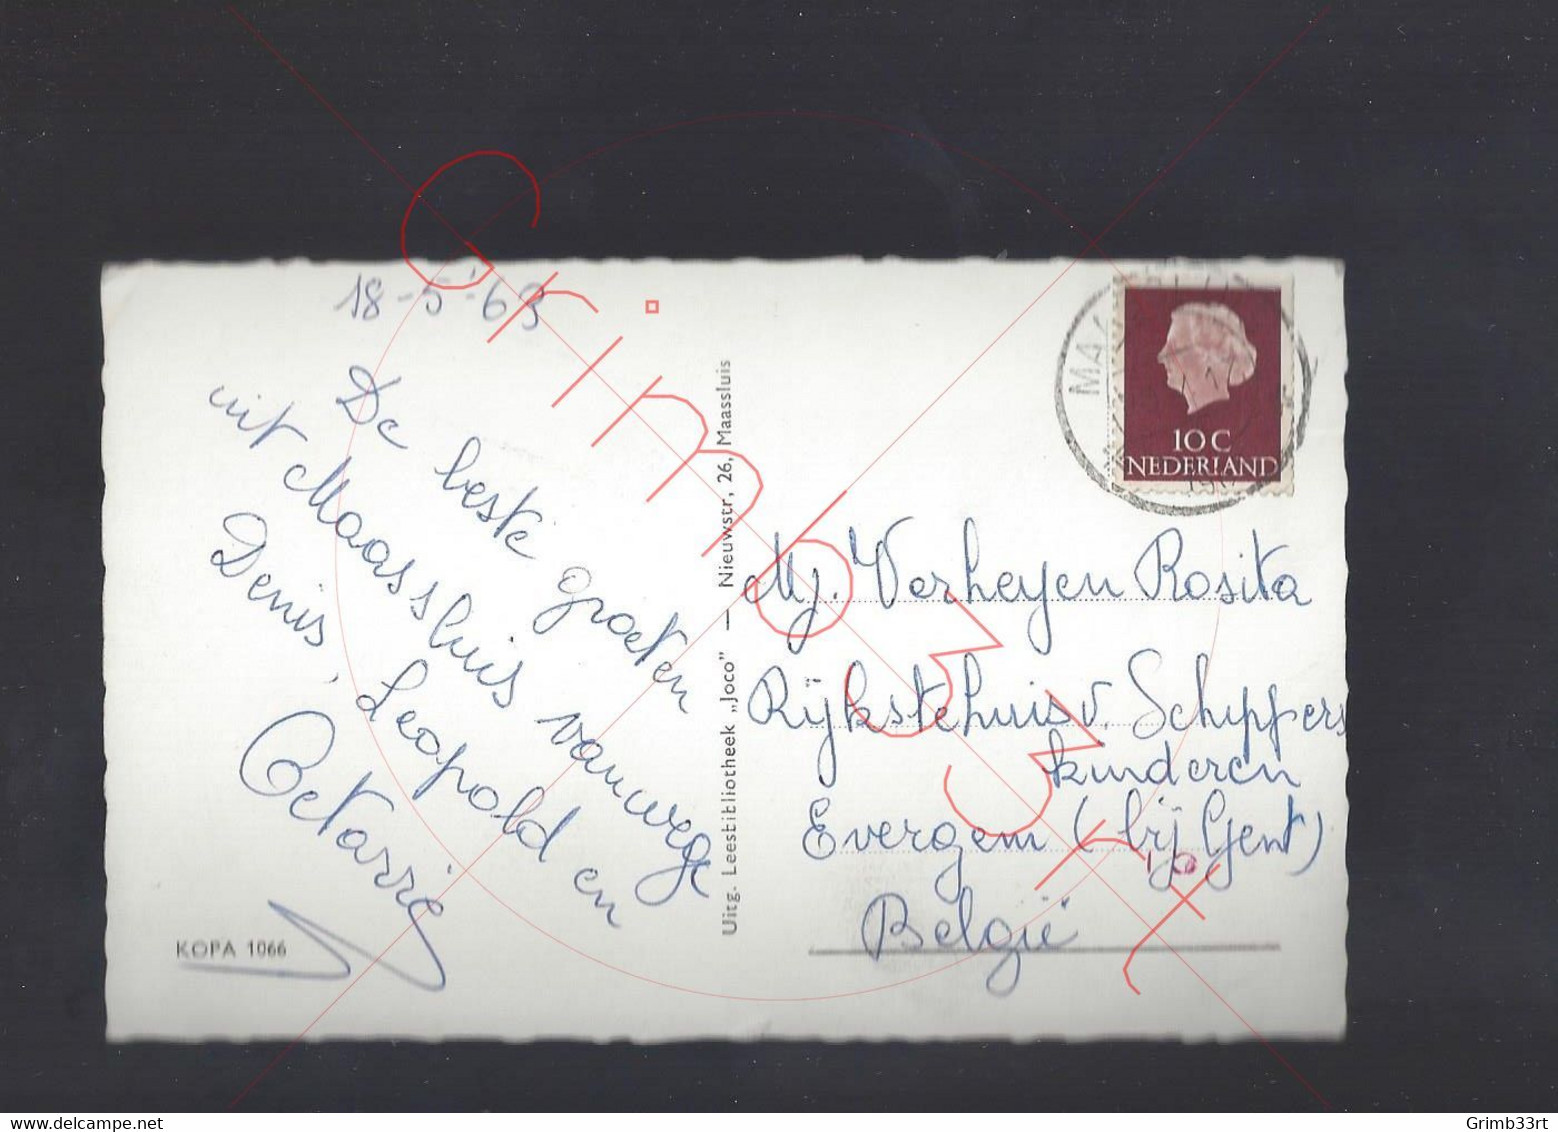 18-5-63
De beste groeten
uit Maassluis vanwege
Denis, Leopold en
Octarrie
KOPA 1066
Uitg. Leesbibliotheek „Joco” — Nieuwstr, 26, Maassluis
10 C
NEDERLAND
Mj. Verheyen Rosita
Rijkstehuis v. Schippers
kinderen
Evergem (bij Gent)
België
Grimb33rt
delcampe.net
Grimb33rt